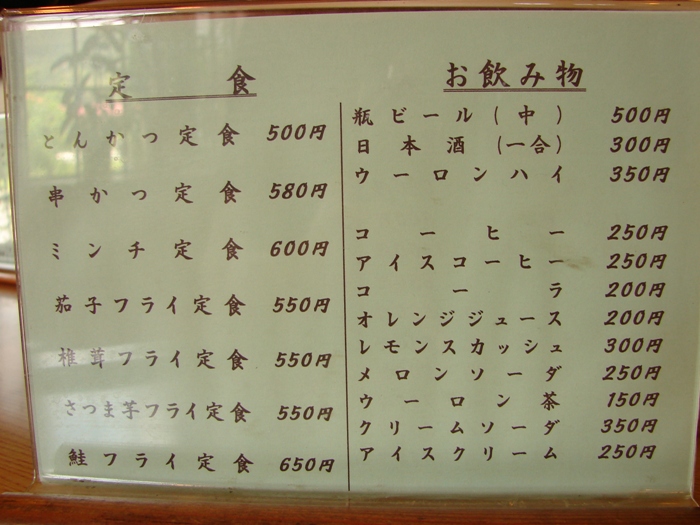 定食
とんかつ定食 500円
串かつ定食 580円
ミンチ定食 600円
茄子フライ定食 550円
椎茸フライ定食 550円
さつま芋フライ定食 550円
鮭フライ定食 650円
お飲み物
瓶ビール(中) 500円
日本酒(一合) 300円
ウーロンハイ 350円
コーヒー 250円
アイスコーヒー 250円
コーラ 200円
オレンジジュース 200円
レモンスカッシュ 300円
メロンソーダ 250円
ウーロン茶 150円
クリームソーダ 350円
アイスクリーム 250円